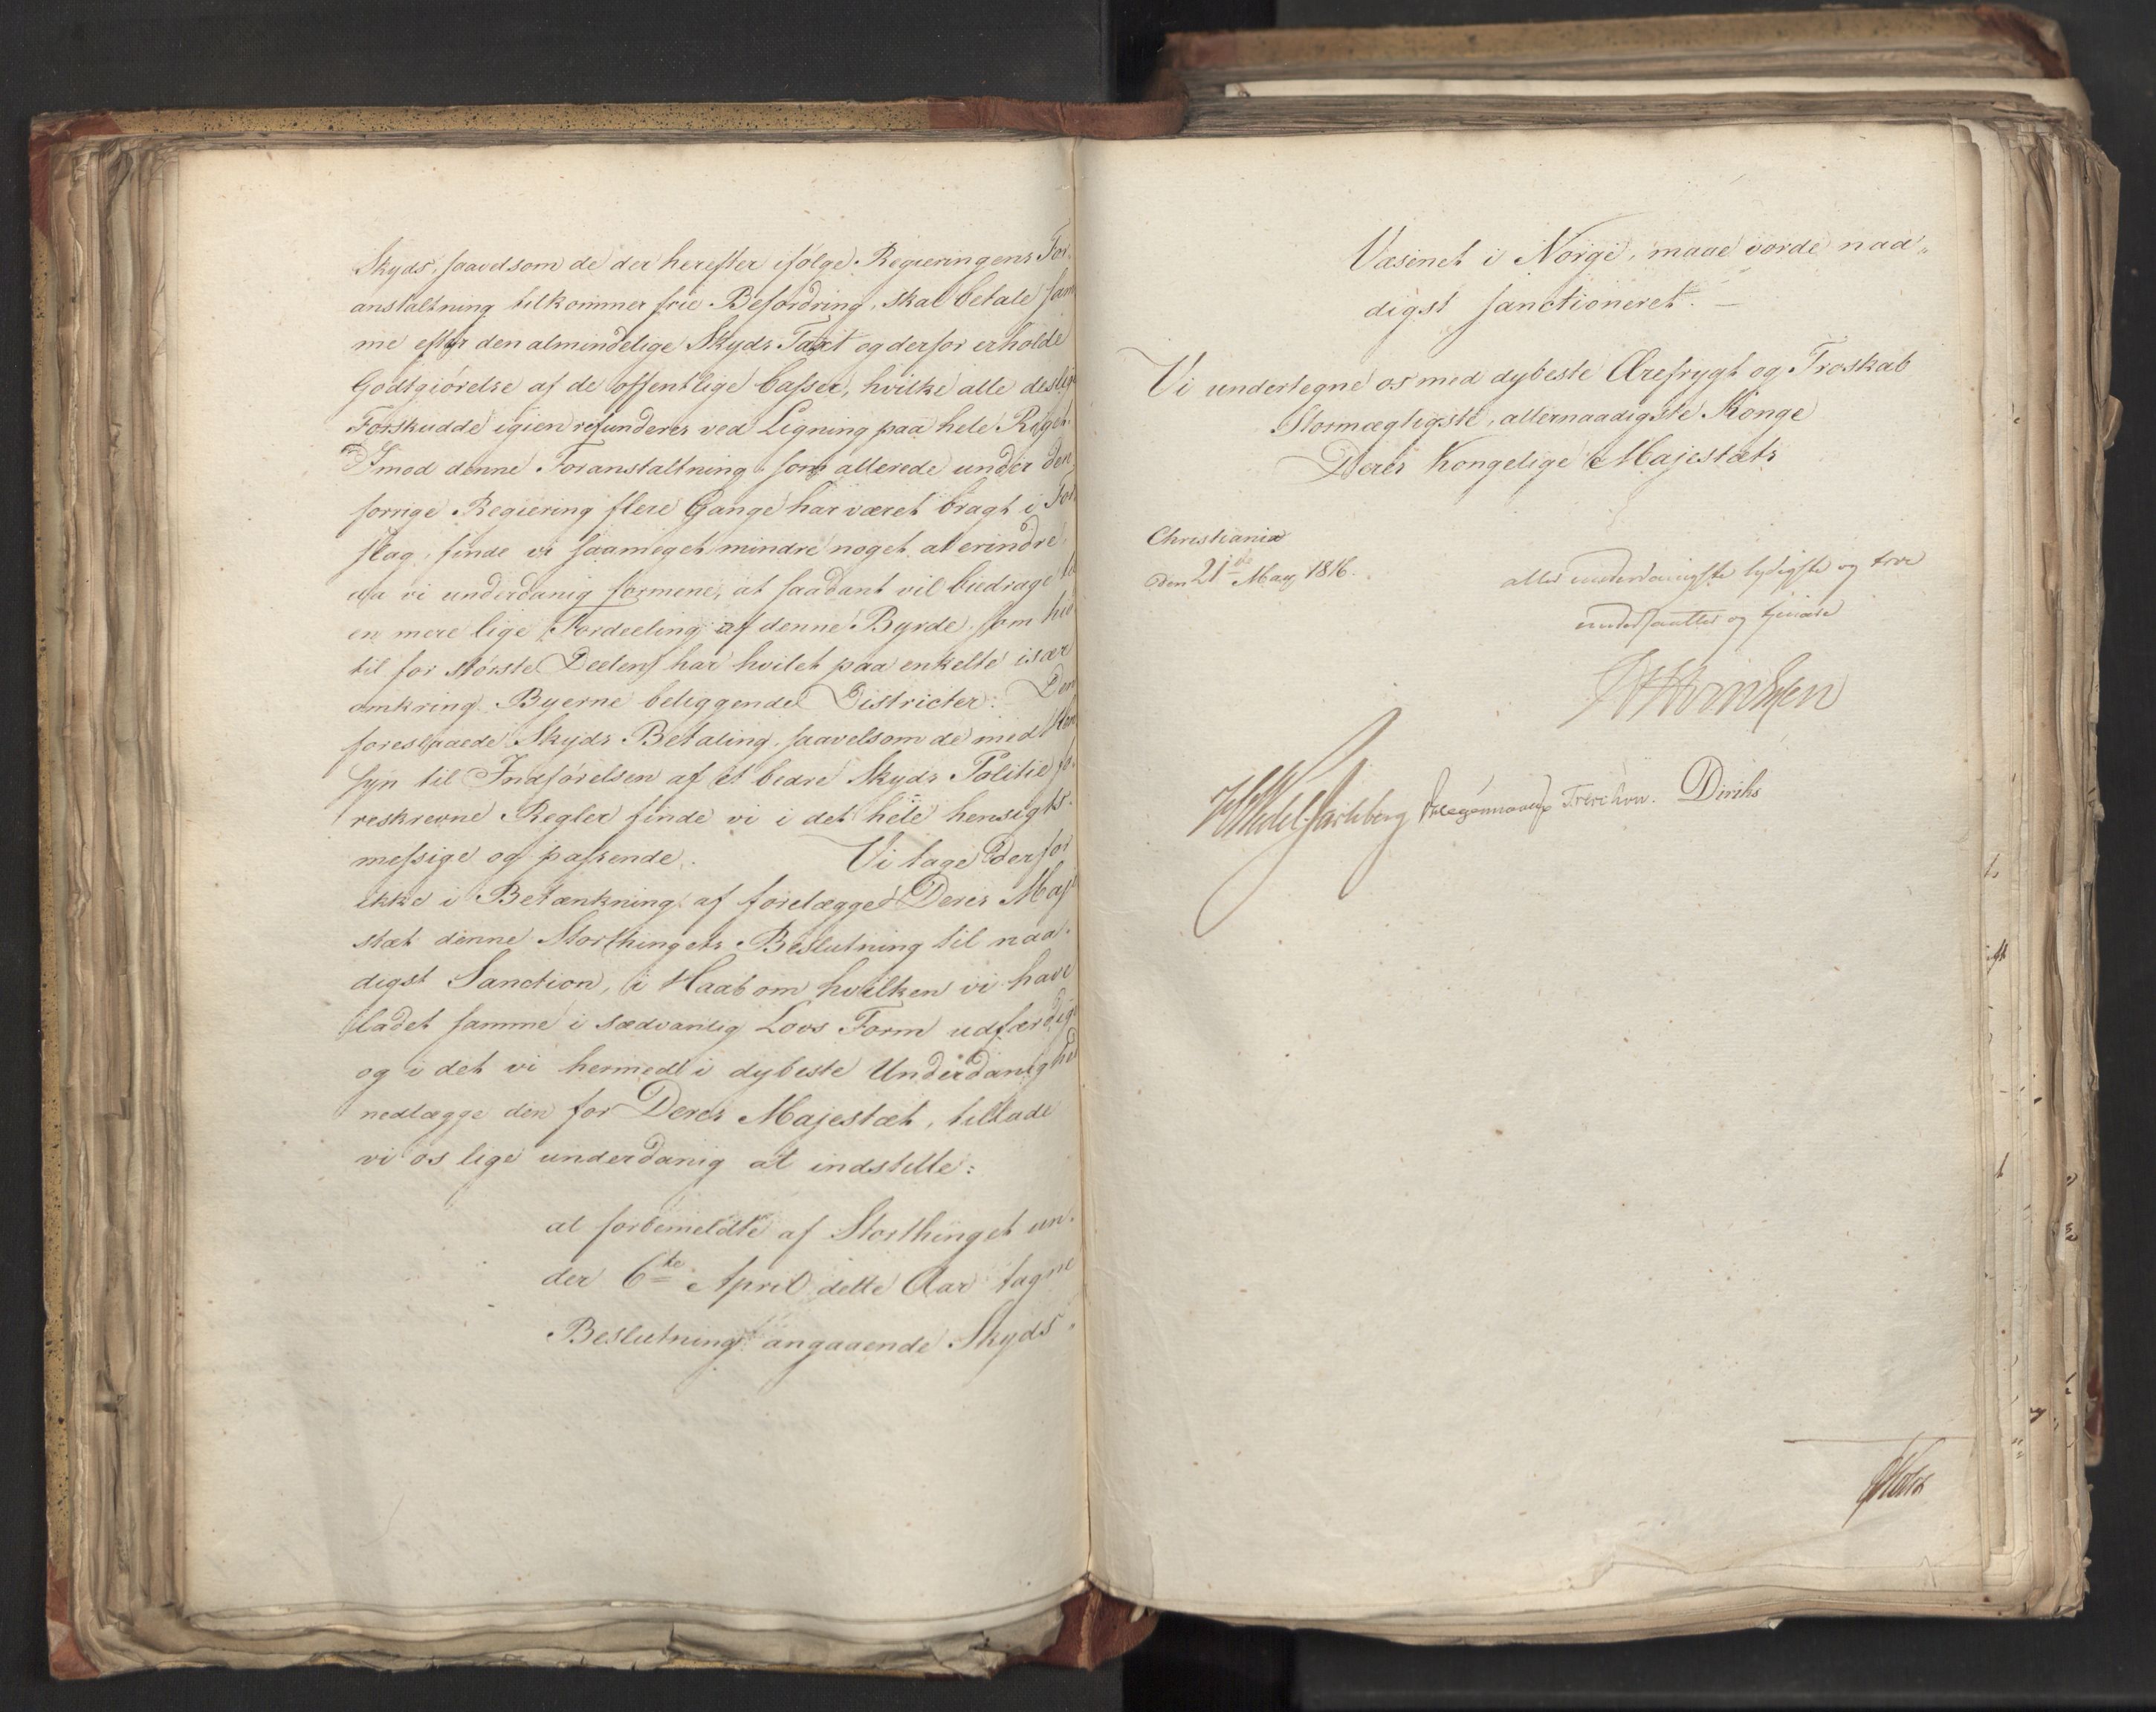 Skyds, saavelsom de der herefter ifølge Regieringens For-
anstaltning tilkommer frie Befordring, skal betale sam
me efter den almindelige Skyds Taxt og derfor erholde
Godtgiørelse af de offentlige Casser, hvilke alle deslige
Forskudde igien refunderes ved Ligning paa hele Riget.
Imod denne Foranstaltning, som allerede under den
forrige Regiering flere Gange har været bragt i For
slag, finde vi saameget mindre noget at erindre,
da vi underdanig formene, at saadant vil bidrage til
en mere lige Fordeeling af denne Byrde, som hid
til for største Deelen har hvilet paa enkelte især
omkring Byerne beliggende Districter. Den
foreslaaede Skyds Betaling, saavelsom de med Hen
syn til Indførelsen af et bedre Skyds Politie fo-
reskrevne Regler finde vi i det hele hensigts-
messige og passende. Vi tage derfor
ikke i Betænkning af forelægge Deres Maje
stæt denne Storthingets Beslutning til naa-
digst Sanction, i Haab om hvilken vi have
ladet samme i sædvanlig Lovs Form udfærdige
og i det vi hermed i dybeste Underdanighed
nedlægge den for Deres Majestæt, tillade
vi os lige underdanig at indstille:
at forbemeldte af Storthinget un-
der 6te April dette Aar tagne
Beslutning angaaende Skyds-
Væsenet i Norge, maae vorde naa-
digst sanctioneret. —
Vi undertegne os med dybeste Ærefrygt og Troskab
Stormægtigste, allernaadigste Konge
Deres Kongelige Majestæts
Christiania
den 21de May 1816.
allerunderdanigste lydigste og troe
undersaatter og tjenere
Wedel Jarlsberg Treschow. Diriks